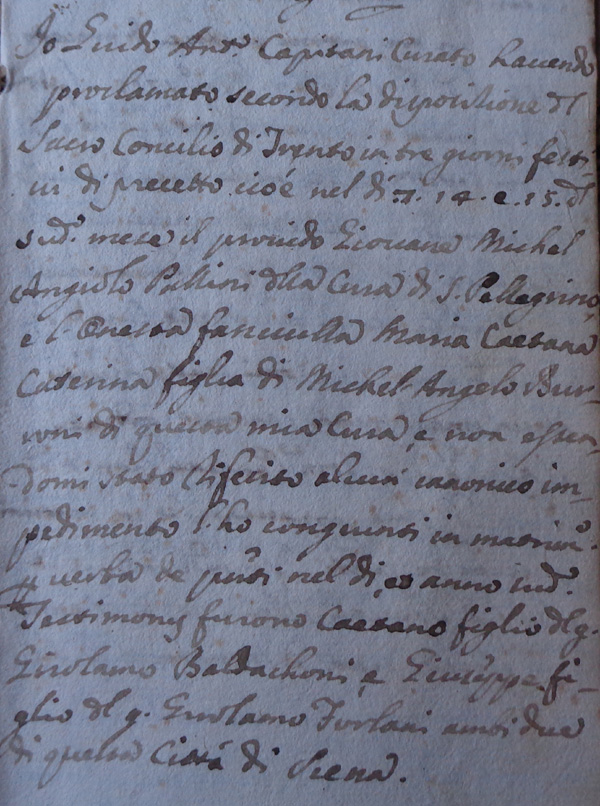 Io Guido Ant.° Capitani Curato havendo
proclamato secondo la disposizione dl
Sacro Concilio di Trento in tre giorni festi-
vi di precetto cioè nel dì 7. 14. e. 15. dl
sud.° mese il provido Giovane Michel
Angiolo Pallini dlla Cura di S. Pellegrino,
e l'Onesta fanciulla Maria Caetana
Caterina figlia di Michel Angelo Bur-
roni di questa mia Cura, e non essen-
domi stato riferito alcun canonico im-
pedimento l'ho congiunti in matrim.°
p verba de pnti nel dì, et anno sud.°
Testimonj furono Caetano figlio dl q.
Girolamo Baldachoni, e Giuseppe fi-
glio dl q. Girolamo Forlani ambi due
di questa Città di Siena.